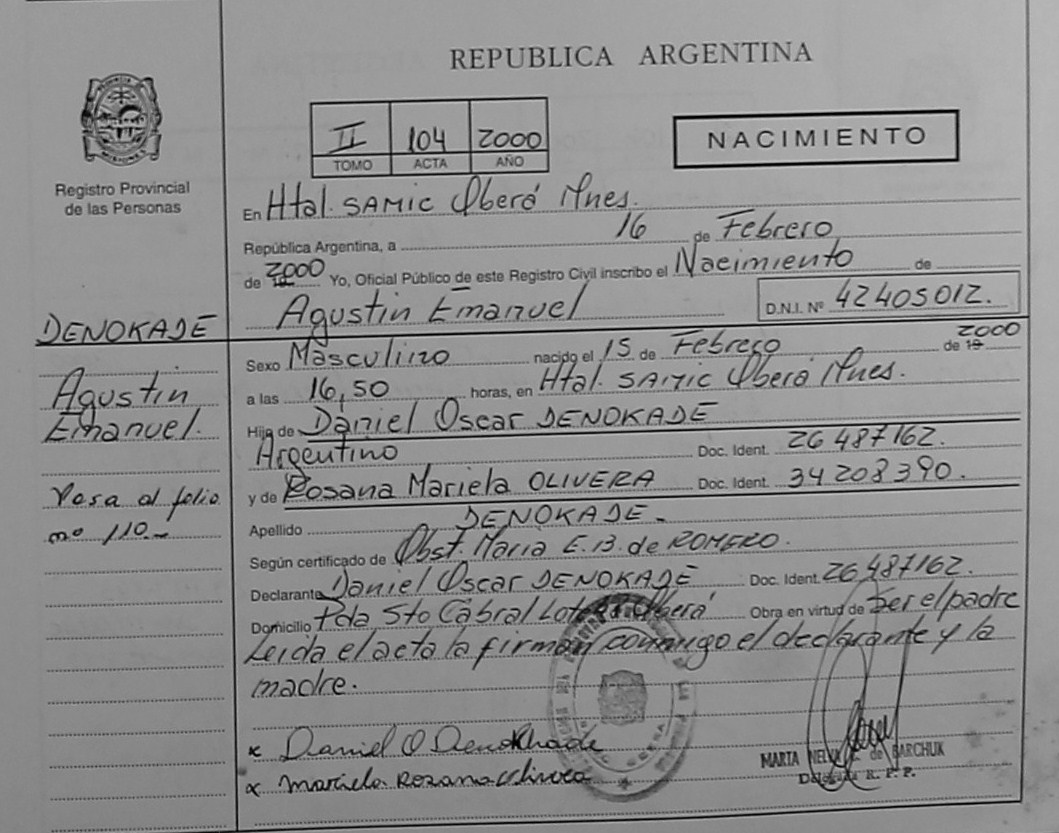 REPUBLICA ARGENTINA
II 104 2000
TOMO ACTA AÑO
NACIMIENTO
Registro Provincial
de las Personas
En Htal. SAMIC Oberá Mnes.
República Argentina, a 16 de Febrero
de 2000 Yo, Oficial Público de este Registro Civil inscribo el Nacimiento de
Agustin Emanuel D.N.I. Nº 42405012.
DENOKADE
Agustin
Emanuel.
Pasa al folio
nº 110.-
Sexo Masculino nacido el 15 de Febrero de 19 2000
a las 16,50 horas, en Htal. SAMIC Oberá Mnes.
Hijo de Daniel Oscar DENOKADE
Argentino Doc. Ident. 26487162.
y de Rosana Mariela OLIVERA Doc. Ident. 34208390.
Apellido DENOKADE-
Según certificado de Obst. Maria E. B. de ROMERO.
Declarante Daniel Oscar DENOKADE Doc. Ident. 26,487162.
Domicilio Pda Sto Cabral Lote Oberá Obra en virtud de Ser el padre
Leida el acta la firman conmigo el declarante y la
madre.
x Daniel O Denokhade
x Mariela Rozana Olivera
MARTA de BARCHUK
Delegada R. P. P.